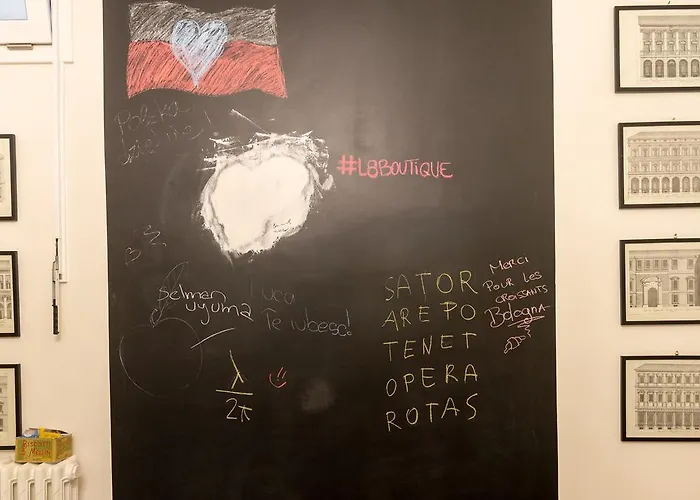 #L8BOUTIQUE
Selman
uyuma
Luca
Te iubesc!
λ
2π
SATOR
AREPO
TENET
OPERA
ROTAS
Merci
Pour les
croissants
Bologna
BISCOTTI